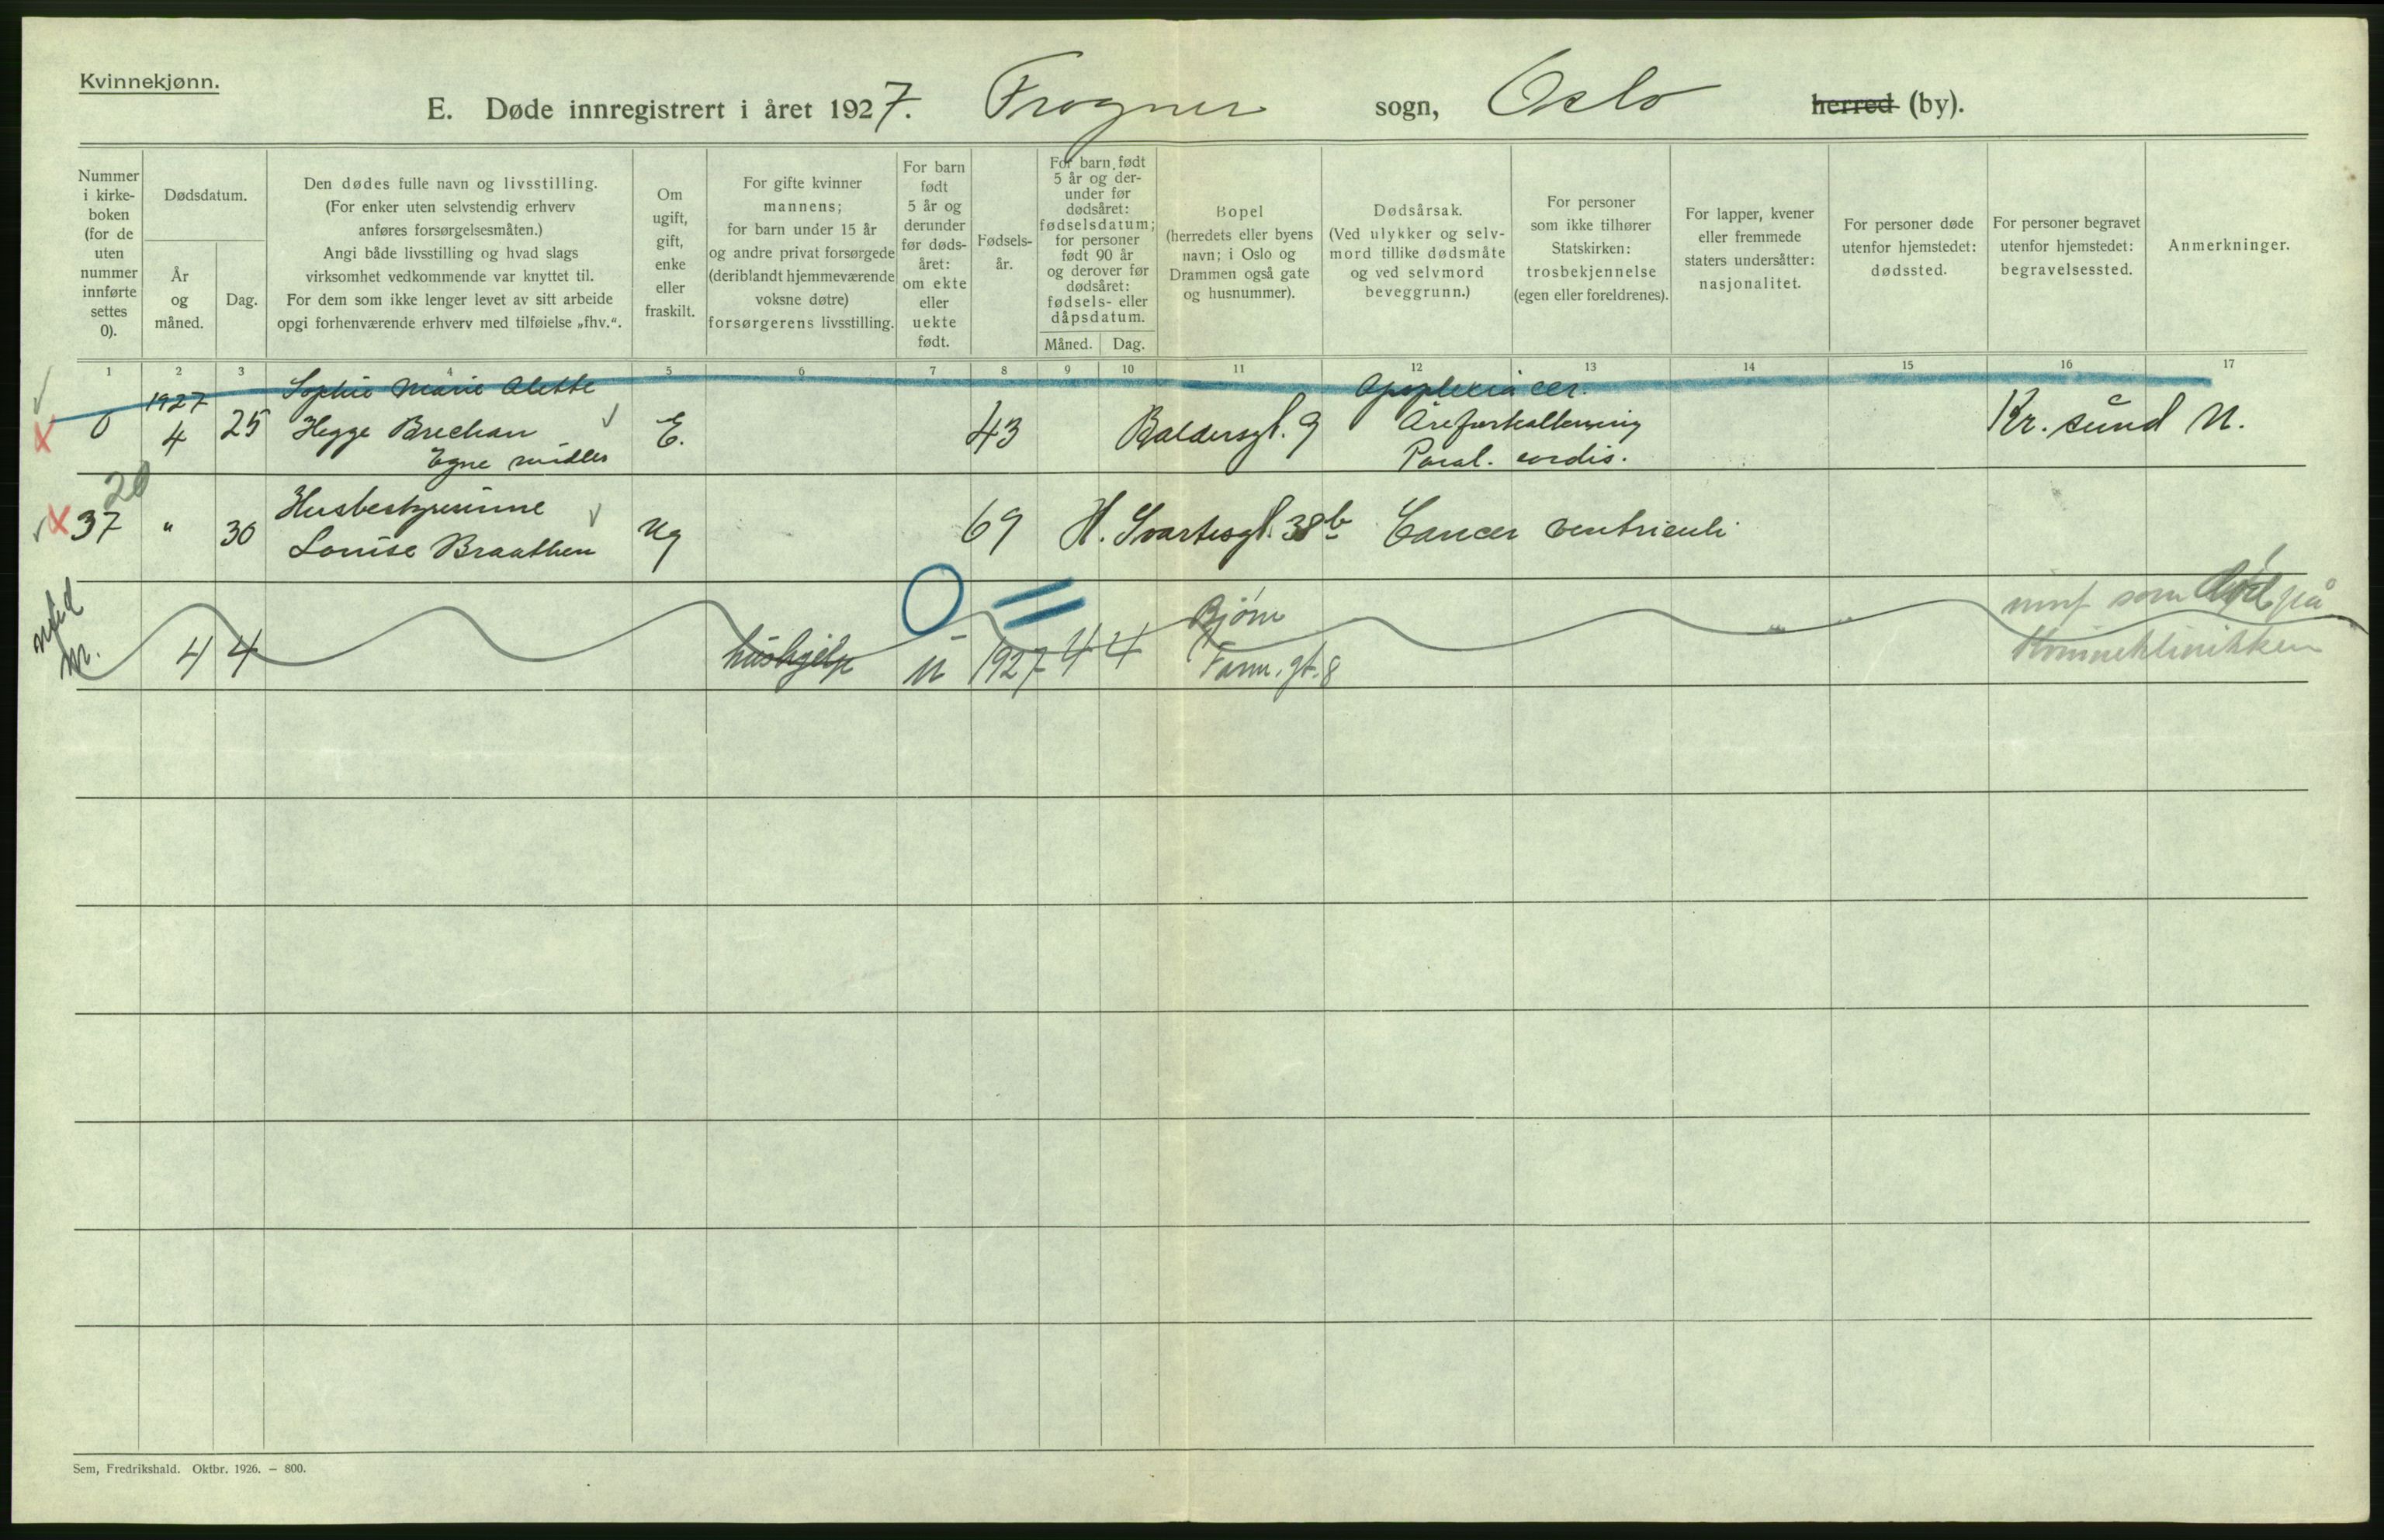 Kvinnekjønn.
E. Døde innregistrert i året 1927. Frogner sogn, Oslo herred (by).
Nummer
i kirke-
boken
(for de
uten
nummer
innførte
settes
0).
Dødsdatum.
År
og
måned.
Dag.
Den dødes fulle navn og livsstilling.
(For enker uten selvstendig erhverv
anføres forsørgelsesmåten.)
Angi både livsstilling og hvad slags
virksomhet vedkommende var knyttet til.
For dem som ikke lenger levet av sitt arbeide
opgi forhenværende erhverv med tilføielse „fhv.“.
Om
ugift,
gift,
enke
eller
fraskilt.
For gifte kvinner
mannens;
for barn under 15 år
og andre privat forsørgede
(deriblandt hjemmeværende
voksne døtre)
forsørgerens livsstilling.
For barn
født
5 år og
derunder
før døds-
året:
om ekte
eller
uekte
født.
Fødsels-
år.
For barn født
5 år og der-
under før
dødsåret:
fødselsdatum;
for personer
født 90 år
og derover før
dødsåret:
fødsels- eller
dåpsdatum.
Måned. Dag.
Bopel
(herredets eller byens
navn; i Oslo og
Drammen også gate
og husnummer).
Dødsårsak.
(Ved ulykker og selv-
mord tillike dødsmåte
og ved selvmord
beveggrunn.)
For personer
som ikke tilhører
Statskirken:
trosbekjennelse
(egen eller foreldrenes).
For lapper, kvener
eller fremmede
staters undersåtter:
nasjonalitet.
For personer døde
utenfor hjemstedet:
dødssted.
For personer begravet
utenfor hjemstedet:
begravelsessted.
Anmerkninger.
1 2 3 4 5 6 7 8 9 10 11 12 13 14 15 16 17
1927 Sophie Marie Alette Apoplexia cer.
0 4 25 Hegge Brechan E. 43 Baldersgt. 9 Åreforkalkning Kr. sund N.
Egne midler Paral. cordis.
20
37 " 30 Husbestyrerinne
Louise Braathen Ug 69 H. Svartesgt. 38b Cancer ventriculi
Bjørn som død på
4 4 hushjelp u 1927 4 4 Farm. gt. 8 Kvinneklinikken
Sem, Fredrikshald. Oktbr. 1926. — 800.